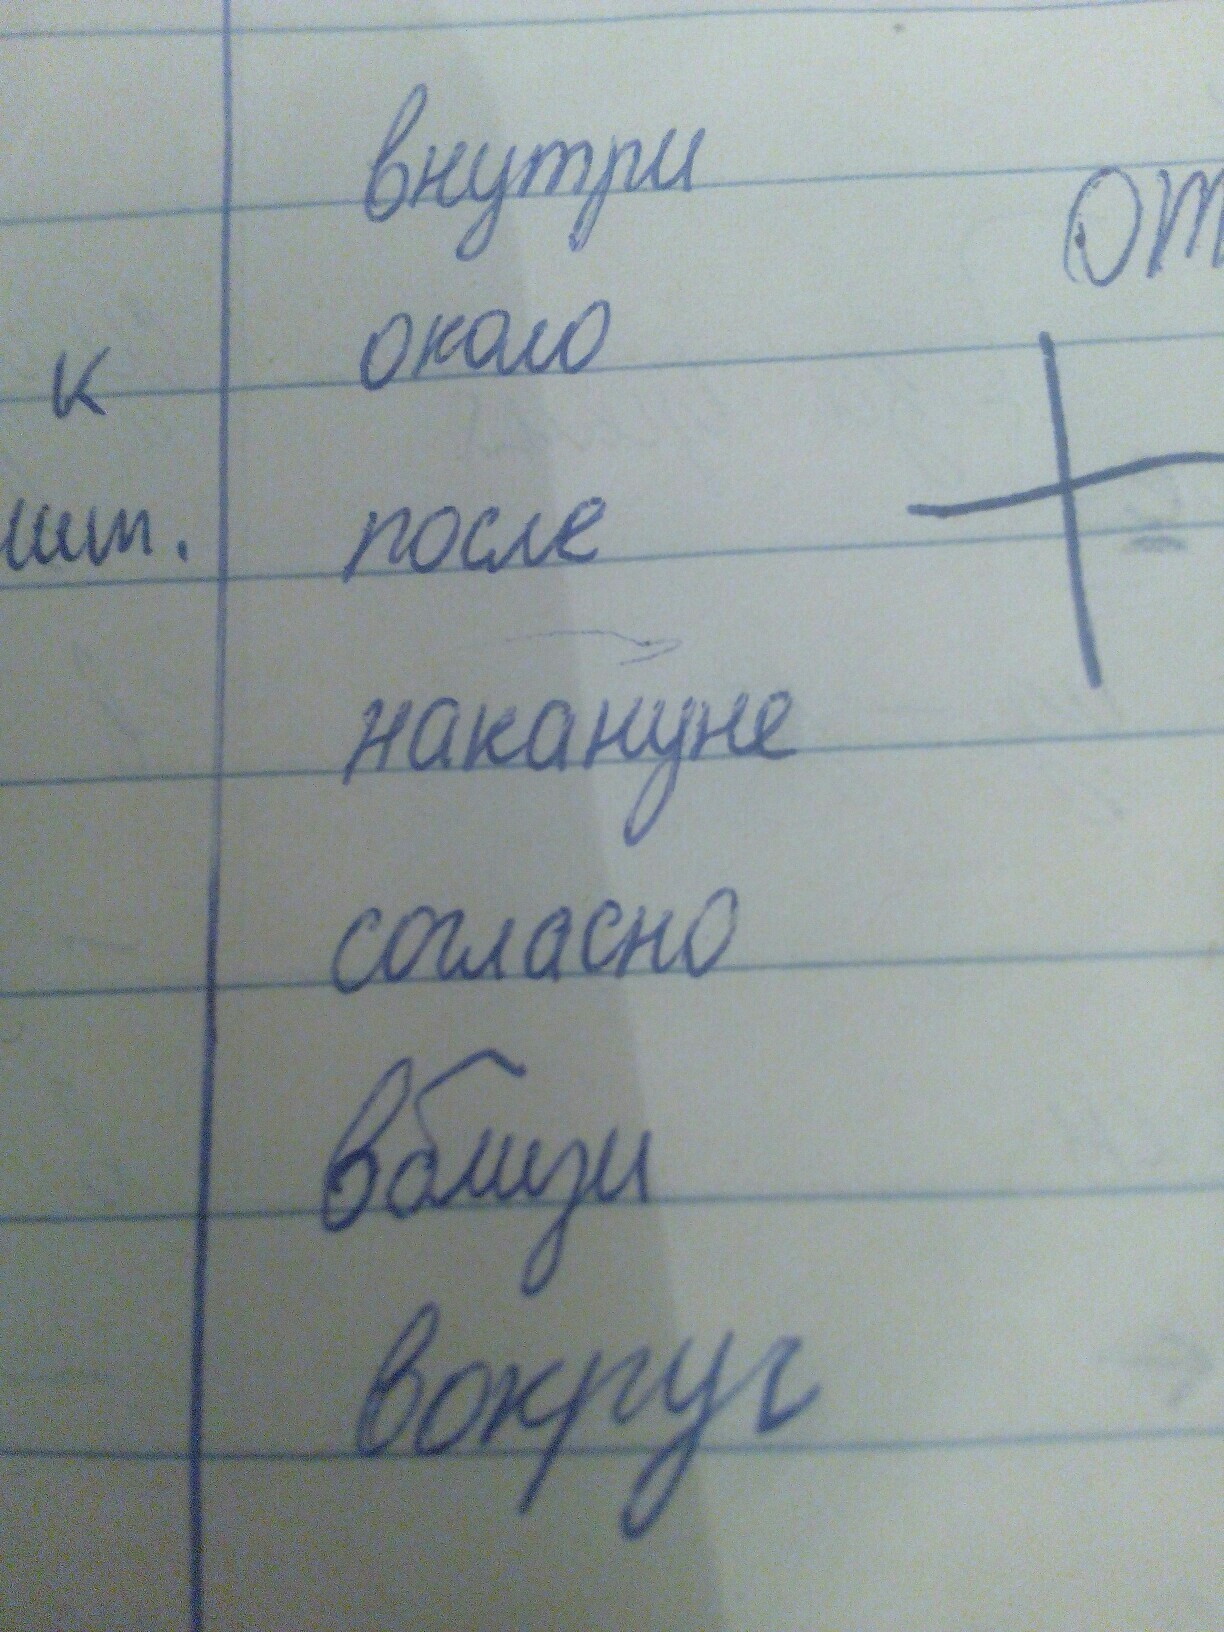 внутри
от
около
к
после
накануне
согласно
вблизи
вокруг